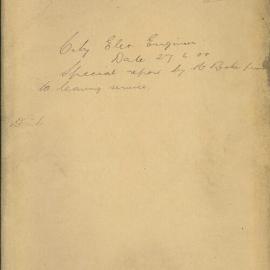 City Elec Engineer
Date 27 6 00
Special report by Mr Bate prior
to leaving service